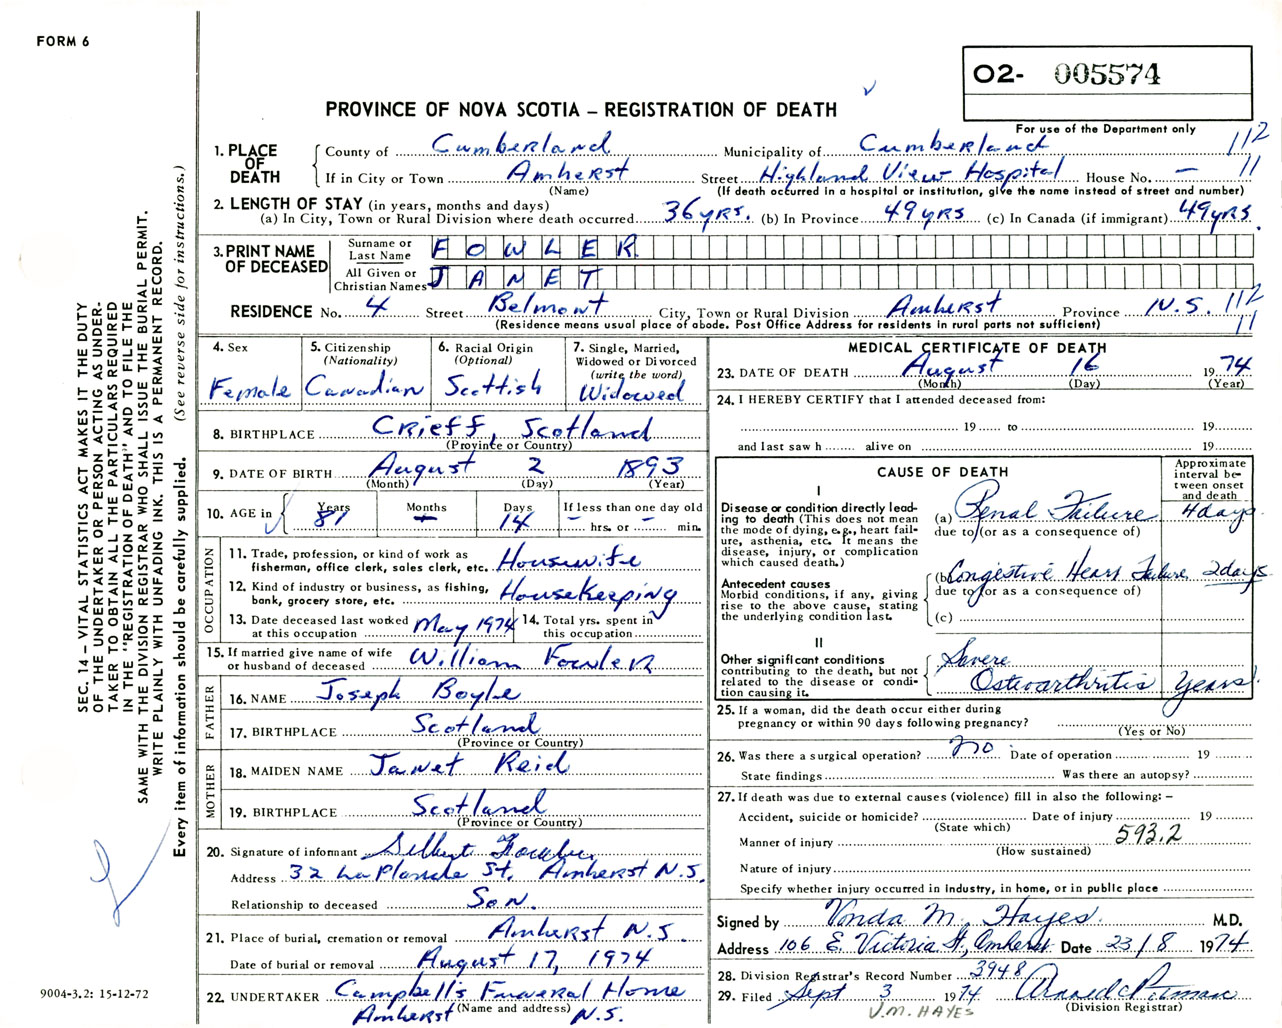 FORM 6
O2- 005574
PROVINCE OF NOVA SCOTIA – REGISTRATION OF DEATH
For use of the Department only
1. PLACE OF DEATH
County of Cumberland Municipality of Cumberland 112
If in City or Town Amherst Street Highland View Hospital House No. – 11
(Name) (If death occurred in a hospital or institution, give the name instead of street and number)
2. LENGTH OF STAY (in years, months and days)
(a) In City, Town or Rural Division where death occurred 36 yrs. (b) In Province 49 yrs (c) In Canada (if immigrant) 49 yrs.
3. PRINT NAME OF DECEASED
Surname or Last Name FOWLER
All Given or Christian Names JANET
RESIDENCE No. 4 Street Belmont City, Town or Rural Division Amherst Province N.S. 112
(Residence means usual place of abode. Post Office Address for residents in rural parts not sufficient) 11
4. Sex
Female
5. Citizenship
(Nationality)
Canadian
6. Racial Origin
(Optional)
Scottish
7. Single, Married,
Widowed or Divorced
(write the word)
Widowed
8. BIRTHPLACE Crieff, Scotland
(Province or Country)
9. DATE OF BIRTH August 2 1893
(Month) (Day) (Year)
10. AGE in Years Months Days If less than one day old
81 – 14 – hrs. or – min.
OCCUPATION
11. Trade, profession, or kind of work as
fisherman, office clerk, sales clerk, etc. Housewife
12. Kind of industry or business, as fishing,
bank, grocery store, etc. Housekeeping
13. Date deceased last worked
at this occupation May 1974
14. Total yrs. spent in
this occupation
15. If married give name of wife
or husband of deceased William Fowler
FATHER
16. NAME Joseph Boyle
17. BIRTHPLACE Scotland
(Province or Country)
MOTHER
18. MAIDEN NAME Janet Reid
19. BIRTHPLACE Scotland
(Province or Country)
20. Signature of informant Fowler
Address 32 La Planche St. Amherst N.S.
Relationship to deceased Son.
21. Place of burial, cremation or removal Amherst N.S.
Date of burial or removal August 17, 1974
22. UNDERTAKER Campbell's Funeral Home
(Name and address)
Amherst N.S.
MEDICAL CERTIFICATE OF DEATH
23. DATE OF DEATH August 16 1974
(Month) (Day) (Year)
24. I HEREBY CERTIFY that I attended deceased from:
19 to 19
and last saw h alive on 19
CAUSE OF DEATH
Approximate
interval be-
tween onset
and death
I
Disease or condition directly lead-
ing to death (This does not mean
the mode of dying, e.g., heart fail-
ure, asthenia, etc. It means the
disease, injury, or complication
which caused death.)
(a) Renal Failure 4 days
due to (or as a consequence of)
Antecedent causes
Morbid conditions, if any, giving
rise to the above cause, stating
the underlying condition last.
(b) Congestive Heart Failure 2 days
due to (or as a consequence of)
(c)
II
Other significant conditions
contributing to the death, but not
related to the disease or condi-
tion causing it.
Severe
Osteoarthritis years
25. If a woman, did the death occur either during
pregnancy or within 90 days following pregnancy?
(Yes or No)
26. Was there a surgical operation? no Date of operation 19
State findings Was there an autopsy?
27. If death was due to external causes (violence) fill in also the following: –
Accident, suicide or homicide? Date of injury 19
(State which)
Manner of injury 593.2
(How sustained)
Nature of injury
Specify whether injury occurred in industry, in home, or in public place
Signed by Vonda M. Hayes M.D.
Address 106 E. Victoria St, Amherst Date 23/8 1974
28. Division Registrar's Record Number 3948
29. Filed Sept 3 1974
(Division Registrar)
V.M. HAYES
SEC. 14 – VITAL STATISTICS ACT MAKES IT THE DUTY
OF THE UNDERTAKER OR PERSON ACTING AS UNDER-
TAKER TO OBTAIN ALL THE PARTICULARS REQUIRED
IN THE "REGISTRATION OF DEATH" AND TO FILE THE
SAME WITH THE DIVISION REGISTRAR WHO SHALL ISSUE THE BURIAL PERMIT.
WRITE PLAINLY WITH UNFADING INK. THIS IS A PERMANENT RECORD.
Every item of information should be carefully supplied. (See reverse side for instructions.)
9004-3.2: 15-12-72